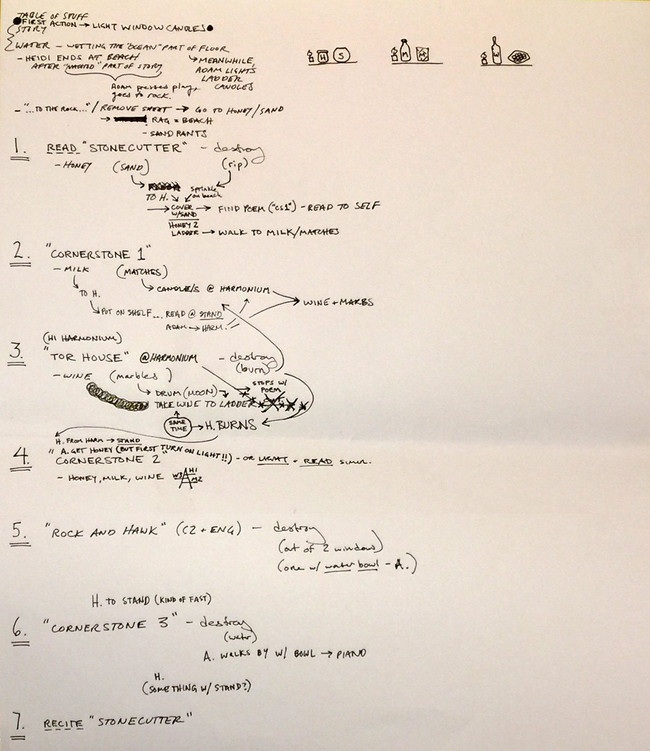 TABLE OF STUFF
FIRST ACTION → LIGHT WINDOW CANDLES
STORY
WATER - WETTING THE "OCEAN" PART OF FLOOR
- HEIDI ENDS AT BEACH
AFTER "WATERED" PART OF STORY
MEANWHILE,
ADAM LIGHTS
LADDER
CANDLES
Adam presses play,
goes to rock.
- "...TO THE ROCK..." / REMOVE SHEET → GO TO HONEY/SAND
→ RAG = BEACH
- SAND PANTS
H S
M
1. READ "STONECUTTER" - destroy
(rip)
- HONEY (SAND)
TO H. sprinkle on beach
→ COVER W/SAND → FIND POEM ("CS1") - READ TO SELF
HONEY 2
LADDER → WALK TO MILK/MATCHES
2. "CORNERSTONE 1"
- MILK (MATCHES)
CANDLE/S @ HARMONIUM
TO H.
PUT ON SHELF... READ @ STAND
ADAM → HARM.
WINE + MARBS
(HI HARMONIUM)
3. "TOR HOUSE" @HARMONIUM - destroy
(burn)
- WINE (marbles)
DRUM (MOON)
STOPS W/
POEM
TAKE WINE TO LADDER
SAME TIME → H. BURNS
H. FROM HARM → STAND
" A. GET HONEY (BUT FIRST TURN ON LIGHT!!)
4. CORNERSTONE 2" - OR LIGHT + READ SIMUL.
- HONEY, MILK, WINE W3 H1 M2
5. "ROCK AND HAWK" (C2 + ENG) - destroy
(out of 2 windows)
(one w/ water bowl - A.)
H. TO STAND (KIND OF FAST)
6. "CORNERSTONE 3" - destroy
(water)
A. WALKS BY W/ BOWL → PIANO
H.
(SOMETHING W/ STAND?)
7. RECITE "STONECUTTER"